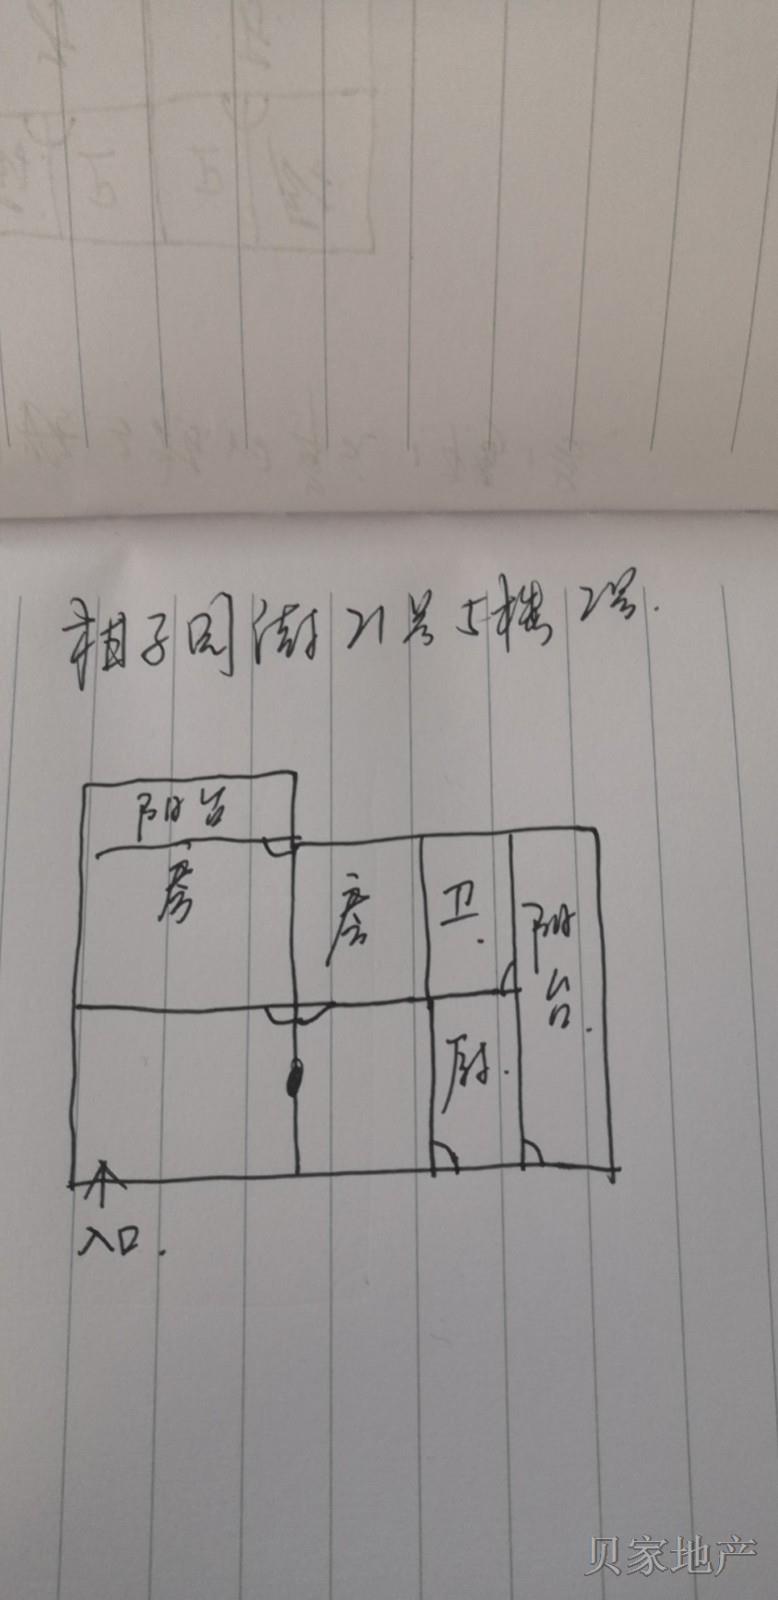 柑子园街21号5楼2号.
阳台
房
房
卫.
阳台.
厨.
入口.
贝家地产